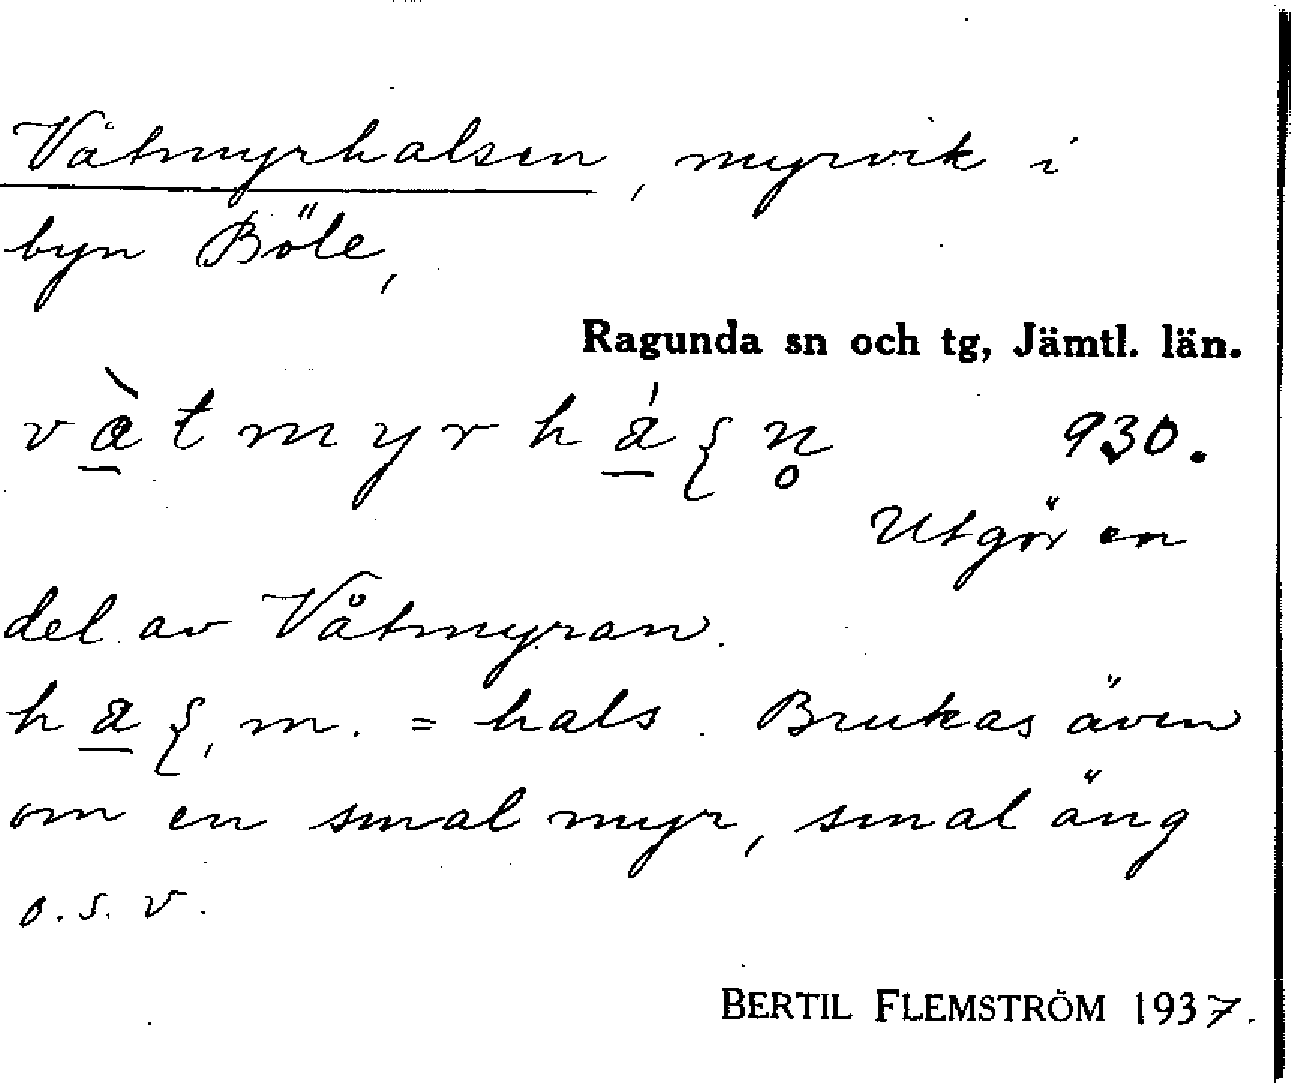 Våtmyrhalsen, myrvik i
byn Böle,
Ragunda sn och tg, Jämtl. län.
930.
Utgör en
del av Våtmyran.
m. = hals. Brukas även
om en smal myr, smal äng
o.s.v.
BERTIL FLEMSTRÖM 1937.